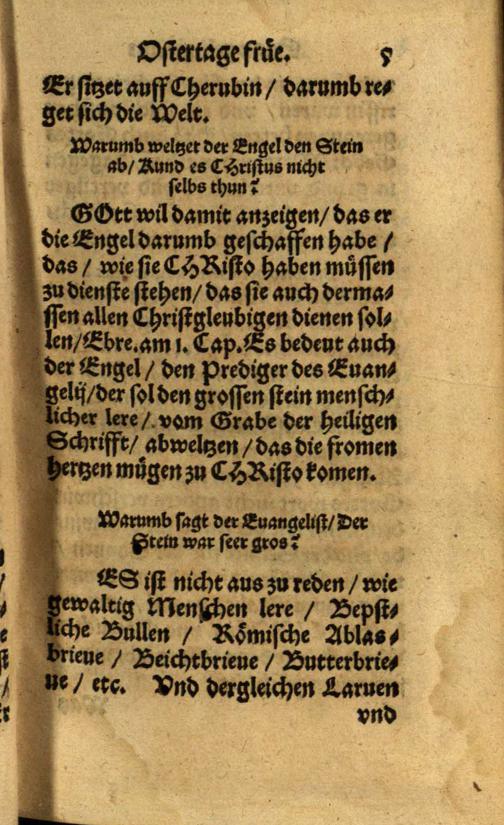 Ostertage früe. 5
Er sitzet auff Cherubin / darumb re⸗
get sich die Welt.
Warumb weltzet der Engel den Stein
ab / Kund es CHristus nicht
selbs thun?
GOtt wil damit anzeigen / das er
die Engel darumb geschaffen habe /
das / wie sie CHRisto haben müssen
zu dienste stehen / das sie auch derma⸗
ssen allen Christgleubigen dienen sol⸗
len / Ebre. am 1. Cap. Es bedeut auch
der Engel / den Prediger des Euan⸗
gelij / der sol den grossen stein mensch⸗
licher lere / vom Grabe der heiligen
Schrifft / abweltzen / das die fromen
hertzen mügen zu CHRisto komen.
Warumb sagt der Euangelist / Der
Stein war seer gros?
ES ist nicht aus zu reden / wie
gewaltig Menschen lere / Bepst⸗
liche Bullen / Römische Ablas⸗
brieue / Beichtbrieue / Butterbrie⸗
ue / etc. Vnd dergleichen Laruen
vnd